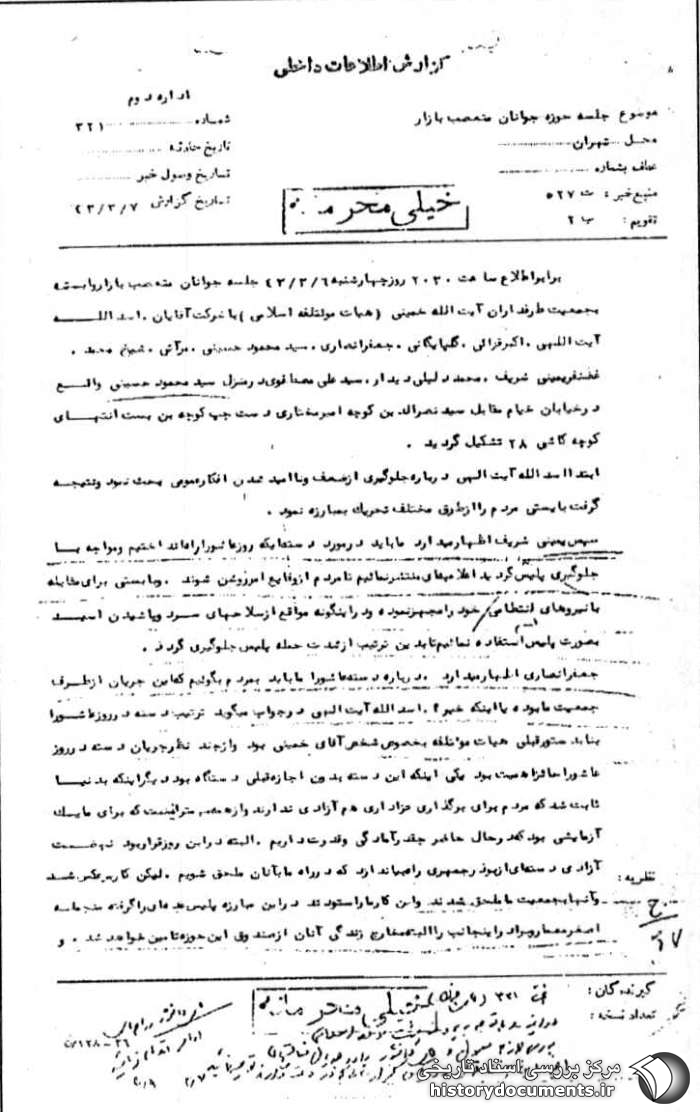 گزارش اطلاعات داخلی
اداره دوم
موضوع جلسه حوزه جوانان متعصب بازار
شماره ۳۲۱
محل تهران
تاریخ حادثه
عطف بشماره
تاریخ وصول خبر
منبع خبر: ت ۵۲۷
تاریخ گزارش ۴۳/۳/۷
تقویم: ب ۲
خیلی محرمانه
برابر اطلاع ساعت ۲۰۳۰ روز چهارشنبه ۴۳/۳/۶ جلسه جوانان متعصب بازار وابسته
بجمعیت طرفداران آیت الله خمینی (هیات موتلفه اسلامی) با شرکت آقایان . اسد اللـه
آیت اللهی . اکبر قرائی . گلپایگانی . جعفر انصاری . سید محمود حسینی . مرآتی . شیخ محمد .
غضنفر یمینی شریف . محمد دلیلی دیدار . سید علی مصطفوی در منزل سید محمود حسینی واقـع
در خیابان خیام مقابل سید نصرالدین کوچه امیر مختاری دست چپ کوچه بن بست انتهـای
کوچه کاشی ۲۸ تشکیل گردید .
ابتدا اسد الله آیت الهی درباره جلوگیری از ضعف و ناامید شدن افکار عمومی بحث نمود و نتیجـه
گرفت بایستی مردم را از طرق مختلف تحریک بمبارزه نمود .
سپس یمینی شریف اظهار میدارد ما باید در مورد دسته ایکه روز عاشورا راه انداختیم و مواجه بـا
جلوگیری پلیس گردید اعلامیه ای منتشر نمائیم تا مردم از وقایع امر روشن شوند . و بایستی برای مقابله
با نیروهای انتظامی خود را مجهز نموده و در اینگونه مواقع از سلاحهای سرد و پاشیدن اسیـد
بصورت پلیس استفاده نمائیم تا بدین ترتیب از شدت حمله پلیس جلوگیری گردد .
جعفر انصاری اظهار میدارد . درباره دسته عاشورا ما باید بمردم بگوئیم که این جریان از طـرف
جمعیت ما بوده یا اینکه خیر؟ . اسد الله آیت الهی در جواب میگوید ترتیب دسته در روز عاشـورا
بنا بدستور قبلی هیات موتلفه بخصوص شخص آقای خمینی بود و از چند نظر جریان دسته در روز
عاشورا حائز اهمیت بود یکی اینکه این دسته بدون اجازه قبلی دستگاه بود دیگر اینکه بدنیـا
ثابت شد که مردم برای برگذاری عزاداری هم آزادی ندارند و از همه مهمتر اینست که برای ما یک
آزمایشی بود که در حال حاضر چقدر آمادگی و قدرت داریم . البته در این روز قرار بود نهضـت
آزادی دسته ای از بوذر جمهری راه بیاندازد که در راه ما بآنان ملحق شویم . لیکن کار برعکس شـد
و آنها بجمعیت ما ملحق شدند و این کار ما را ستودند در این مبارزه پلیس عده ای را گرفته منجمله
اصغر معمار و برادر اینجانب را البته مخارج زندگی آنان از صندوق این حوزه تامین خواهد شد . و
نظریه:
گیرندگان:
تعداد نسخه:
خیلی محرمانه
مرکز بررسی اسناد تاریخی
historydocuments.ir